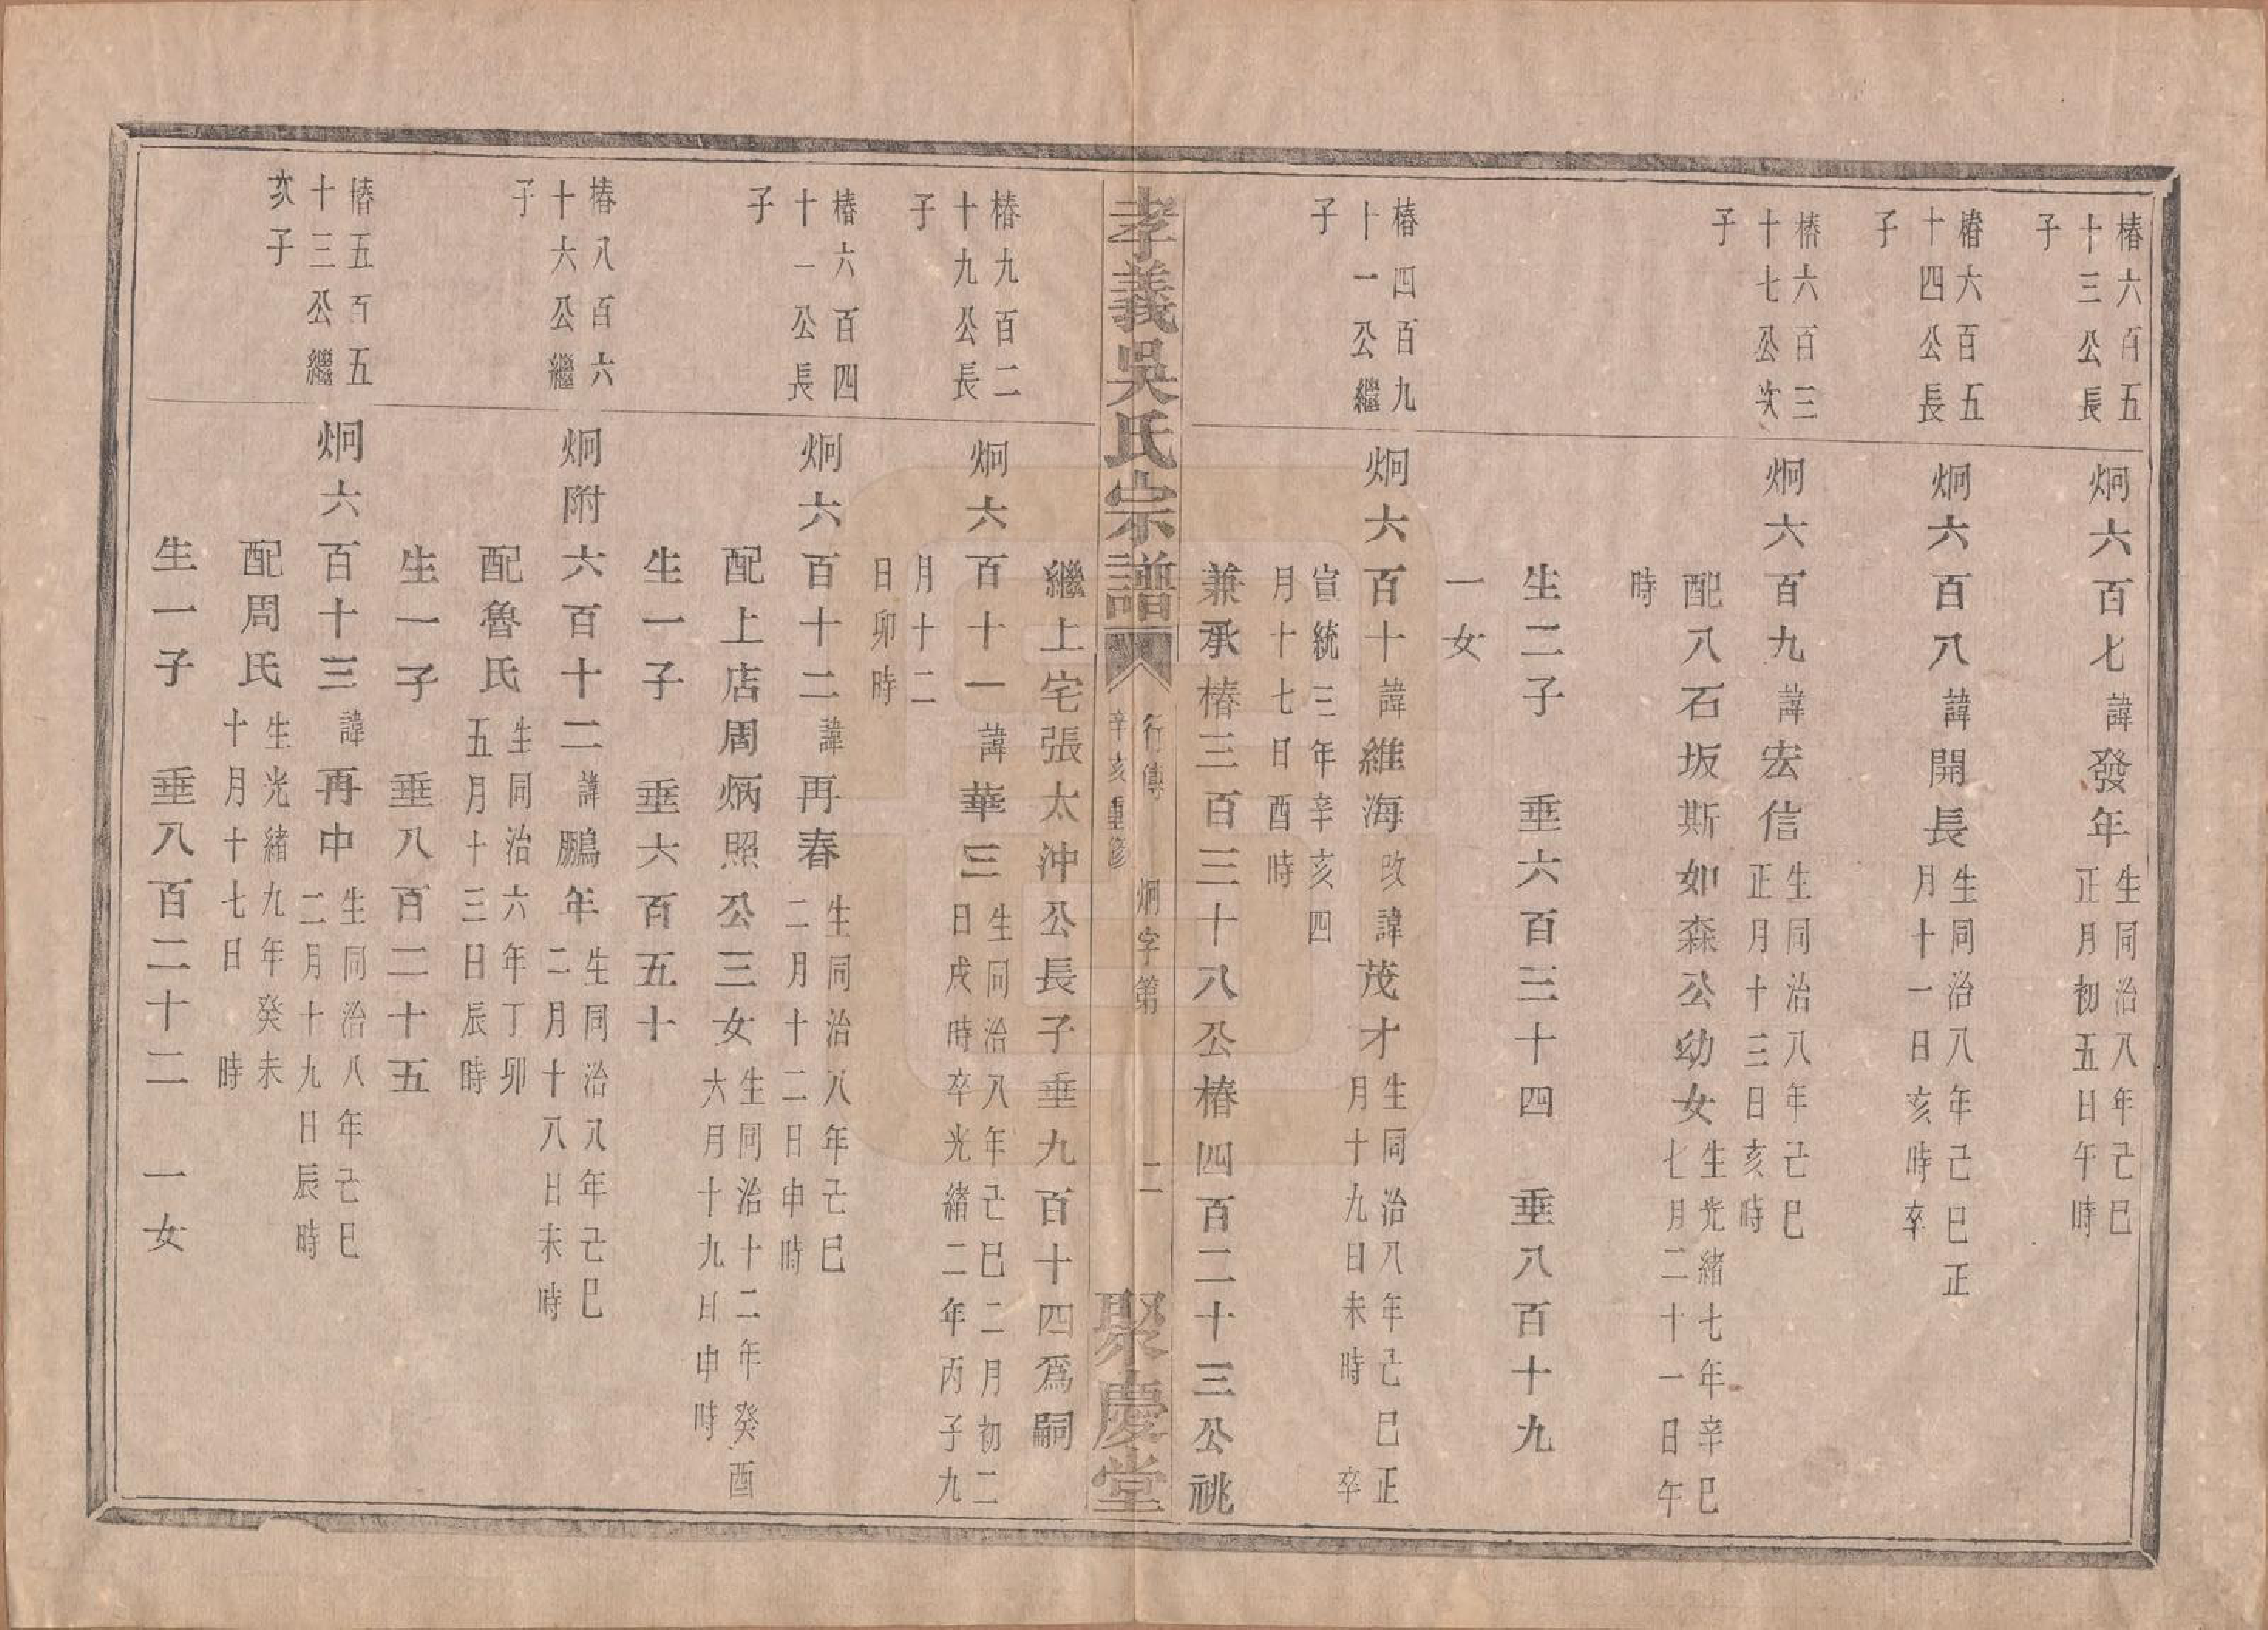 椿六百五
十三公長
子
炯六百七諱發年
生同治八年己巳
正月初五日午時
椿六百五
十四公長
子
炯六百八諱開長
生同治八年己巳正
月十一日亥時卒
椿六百三
十七公次
子
炯六百九諱宏信
生同治八年己巳
正月十三日亥時
配八石坂斯如森公幼女
生光緒七年辛巳
七月二十一日午
時
生二子 垂六百三十四 垂八百十九
一女
椿四百九
十一公繼
子
炯六百十諱維海改諱茂才
生同治八年己巳正
月十九日未時卒
宣統三年辛亥四
月十七日酉時
兼承椿三百三十八公椿四百二十三公祧
孝義吳氏宗譜
行傳 炯字第 二
辛亥重修
聚慶堂
繼上宅張太沖公長子垂九百十四爲嗣
椿九百二
十九公長
子
炯六百十一諱華三
生同治八年己巳二月初二
日戌時卒光緒二年丙子九
月十二
日卯時
椿六百四
十一公長
子
炯六百十二諱再春
生同治八年己巳
二月十二日申時
配上店周炳照公三女
生同治十二年癸酉
六月十九日申時
生一子 垂六百五十
椿八百六
十六公繼
子
炯附六百十二諱鵬年
生同治八年己巳
二月十八日未時
配魯氏
生同治六年丁卯
五月十三日辰時
生一子 垂八百二十五
椿五百五
十三公繼
次子
炯六百十三諱再中
生同治八年己巳
二月十九日辰時
配周氏
生光緒九年癸未
十月十七日時
生一子 垂八百二十二 一女